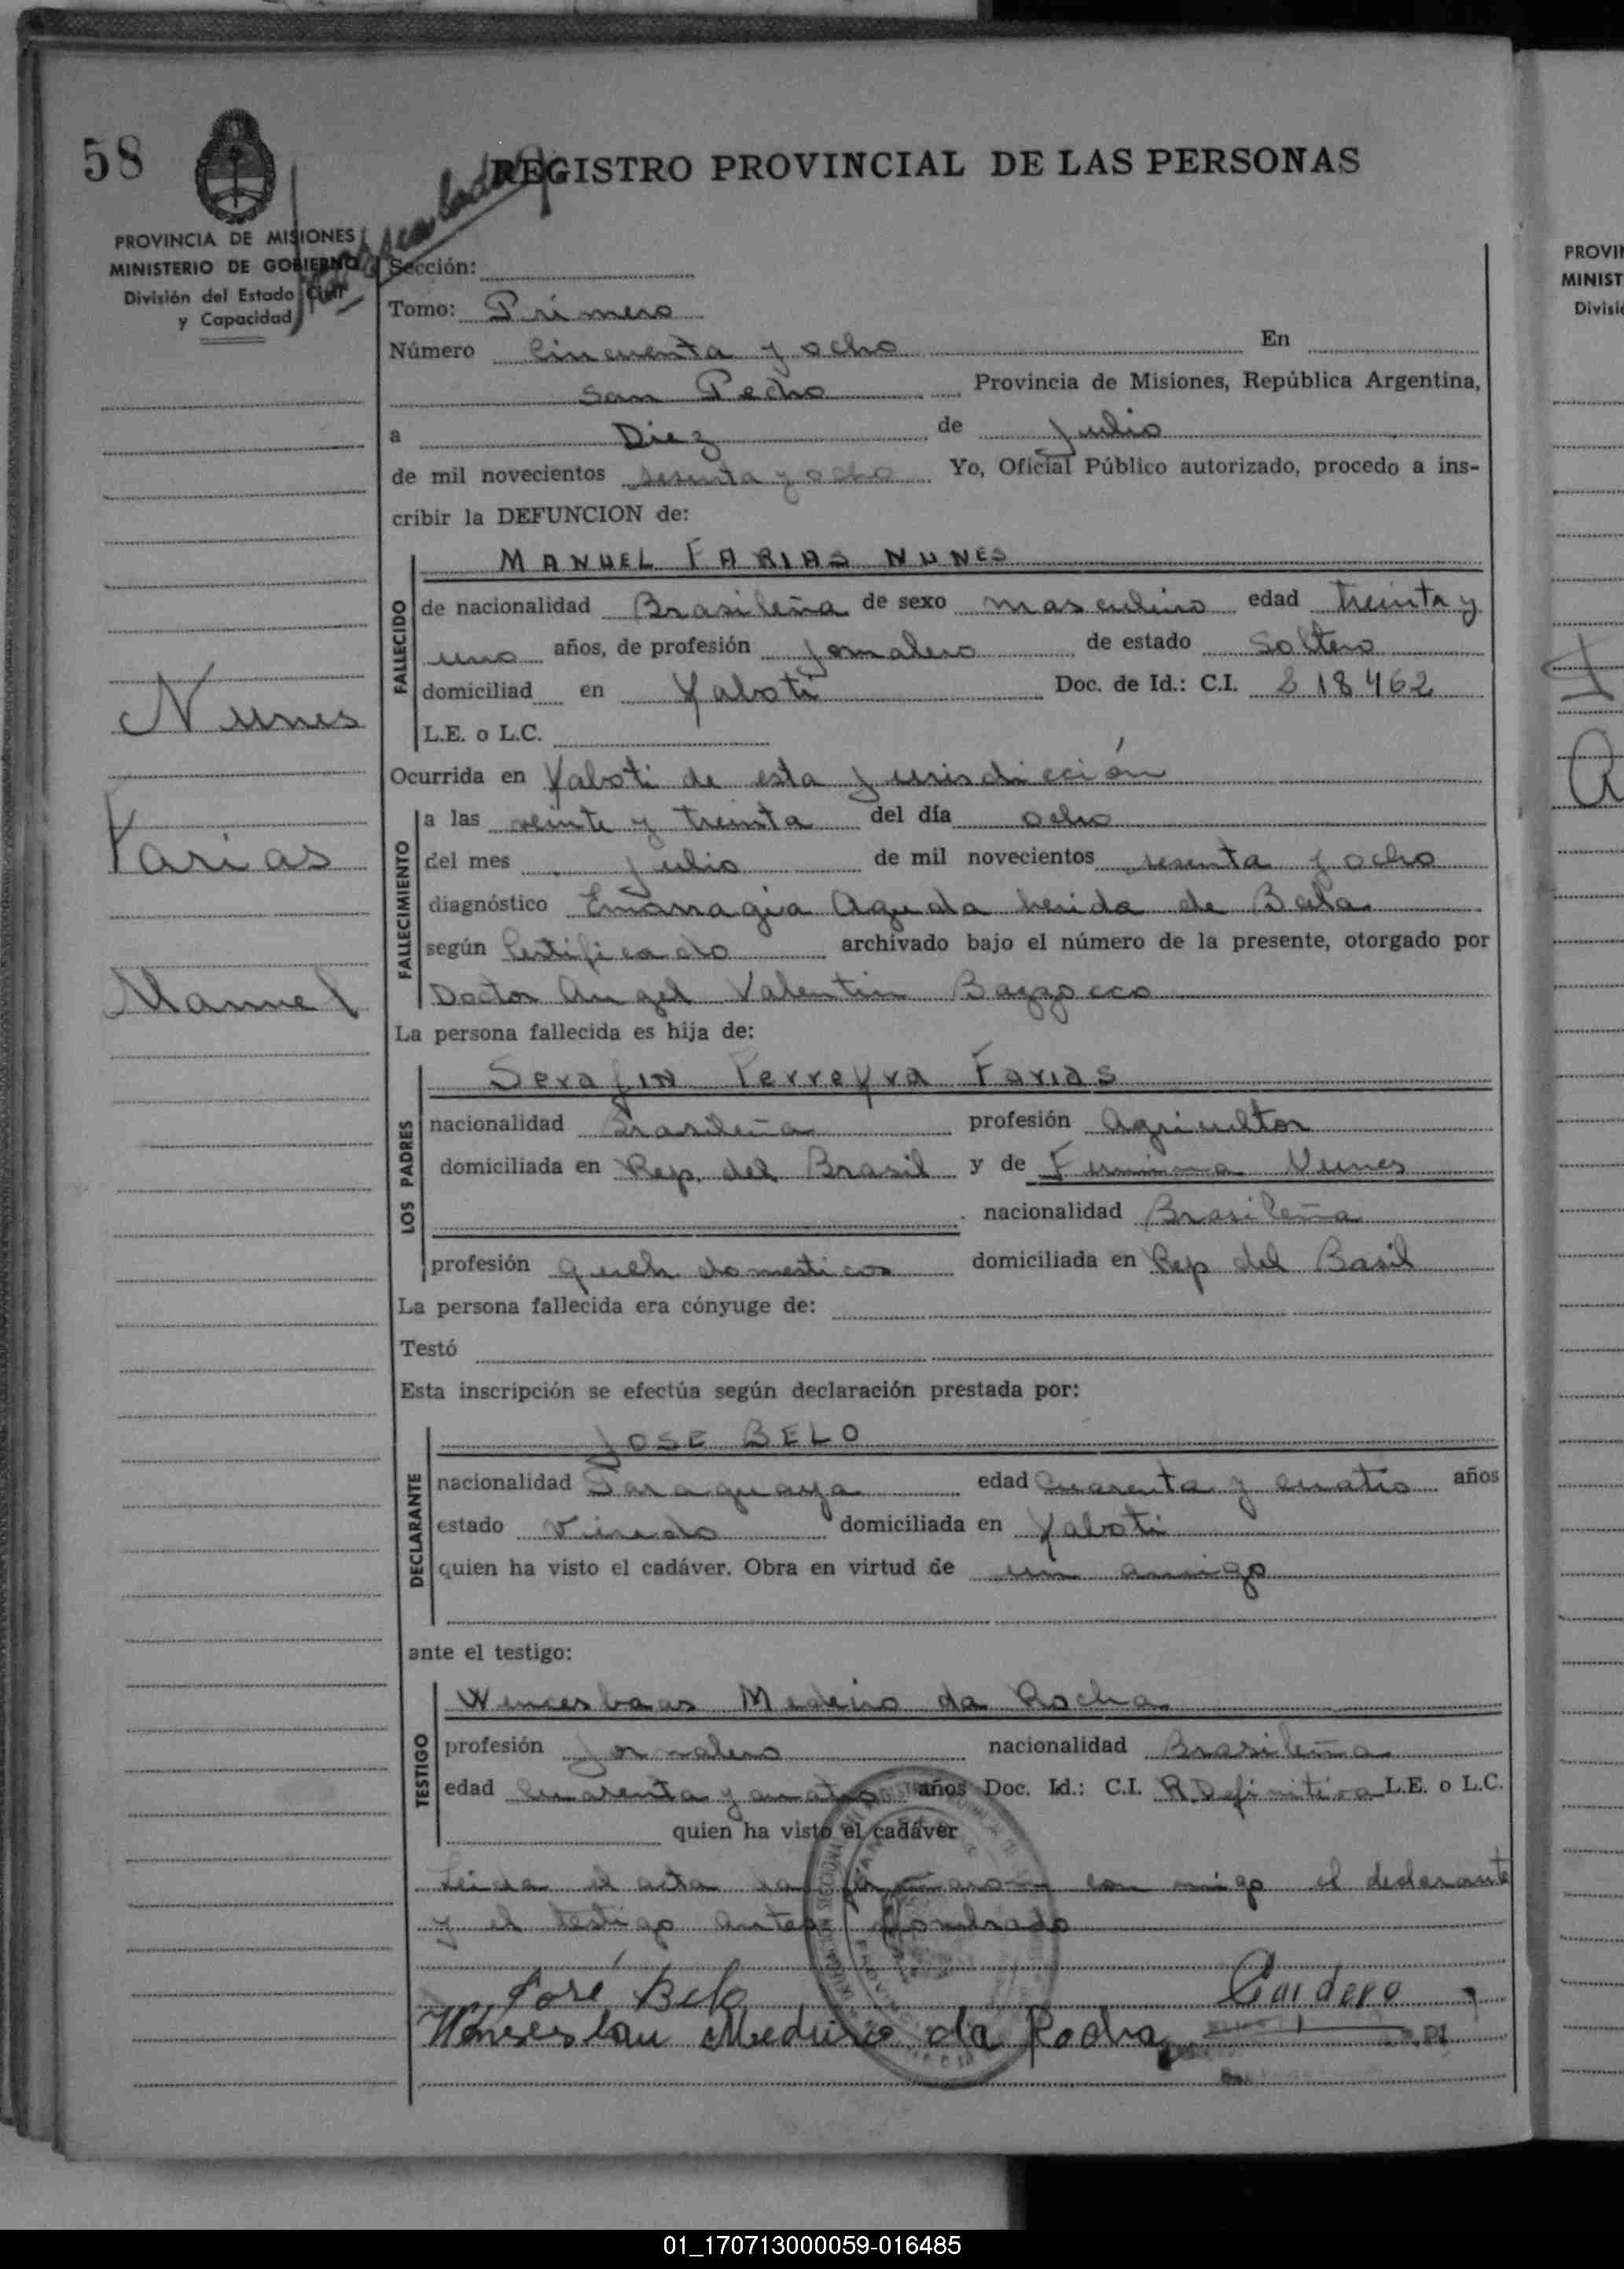 58
REGISTRO PROVINCIAL DE LAS PERSONAS
PROVINCIA DE MISIONES
MINISTERIO DE GOBIERNO
División del Estado Civil
y Capacidad
Sección:
Tomo: Primero
Número Cincuenta y ocho En
San Pedro Provincia de Misiones, República Argentina,
a Diez de Julio
de mil novecientos sesenta y ocho Yo, Oficial Público autorizado, procedo a ins-
cribir la DEFUNCION de:
MANUEL FARIAS NUNES
FALLECIDO
de nacionalidad Brasileña de sexo masculino edad treinta y
uno años, de profesión Jornalero de estado Soltero
domiciliad en Yaboti Doc. de Id.: C.I. 818462
L.E. o L.C.
Nunes
Farias
Manuel
Ocurrida en Yaboti de esta Jurisdicción
FALLECIMIENTO
a las veinte y treinta del día ocho
del mes Julio de mil novecientos sesenta y ocho
diagnóstico Emorragia Aguda herida de Bala
según Certificado archivado bajo el número de la presente, otorgado por
Doctor Angel Valentin Bazzocco
La persona fallecida es hija de:
LOS PADRES
Serafin Ferreyra Farias
nacionalidad Brasileña profesión Agricultor
domiciliada en Rep. del Brasil y de Nunes
nacionalidad Brasileña
profesión domesticos domiciliada en Rep del Basil
La persona fallecida era cónyuge de:
Testó
Esta inscripción se efectúa según declaración prestada por:
DECLARANTE
JOSE BELO
nacionalidad Paraguaya edad Cuarenta y cuatro años
estado Viudo domiciliada en Yaboti
quien ha visto el cadáver. Obra en virtud de un amigo
ante el testigo:
TESTIGO
Wencesbaas Medeiro da Rocha
profesión Jornalero nacionalidad Brasileña
edad Cuarenta y cuatro años Doc. Id.: C.I. R.Definitiva L.E. o L.C.
quien ha visto el cadáver
Leida el acta la firmaron con migo el declarante
y el testigo antes nombrado
José Belo
Wenceslau Medeiro da Rocha
PROVIN
MINIST
Divisió
01_170713000059-016485